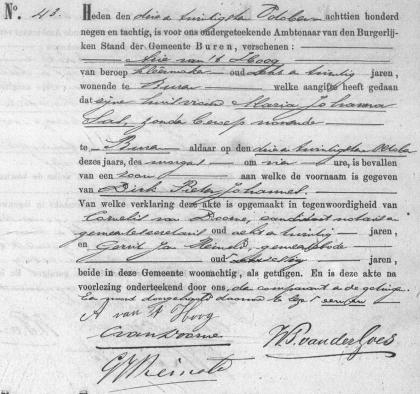 No. 43. Heden den drie a twintigsten October achttien honderd
negen en tachtig, is voor ons ondergeteekende Ambtenaar van den Burgerlij-
ken Stand der Gemeente Buren, verschenen:
Arie van 't Hoog
van beroep kleermaker oud acht a twintig jaren,
wonende te Buren welke aangifte heeft gedaan
dat zijne huisvrouw Maria Johanna
zonder beroep wonende
te Buren aldaar op den drie a twintigsten October
dezes jaars, des morgens om vier ure, is bevallen
van een zoon aan welke de voornaam is gegeven
van Dirk Pieter Johannes.
Van welke verklaring deze akte is opgemaakt in tegenwoordigheid van
Cornelis van Doorne, candidaat notaris a
gemeentesecretaris oud acht a twintig jaren,
en Gerrit Jan gemeentebode
oud jaren,
beide in deze Gemeente woonachtig, als getuigen. En is deze akte na
voorlezing onderteekend door ons, den comparant a de getuigen.
Een woord doorgehaald daarvoor
A van 't Hoog
C van Doorne
W. van der Goes